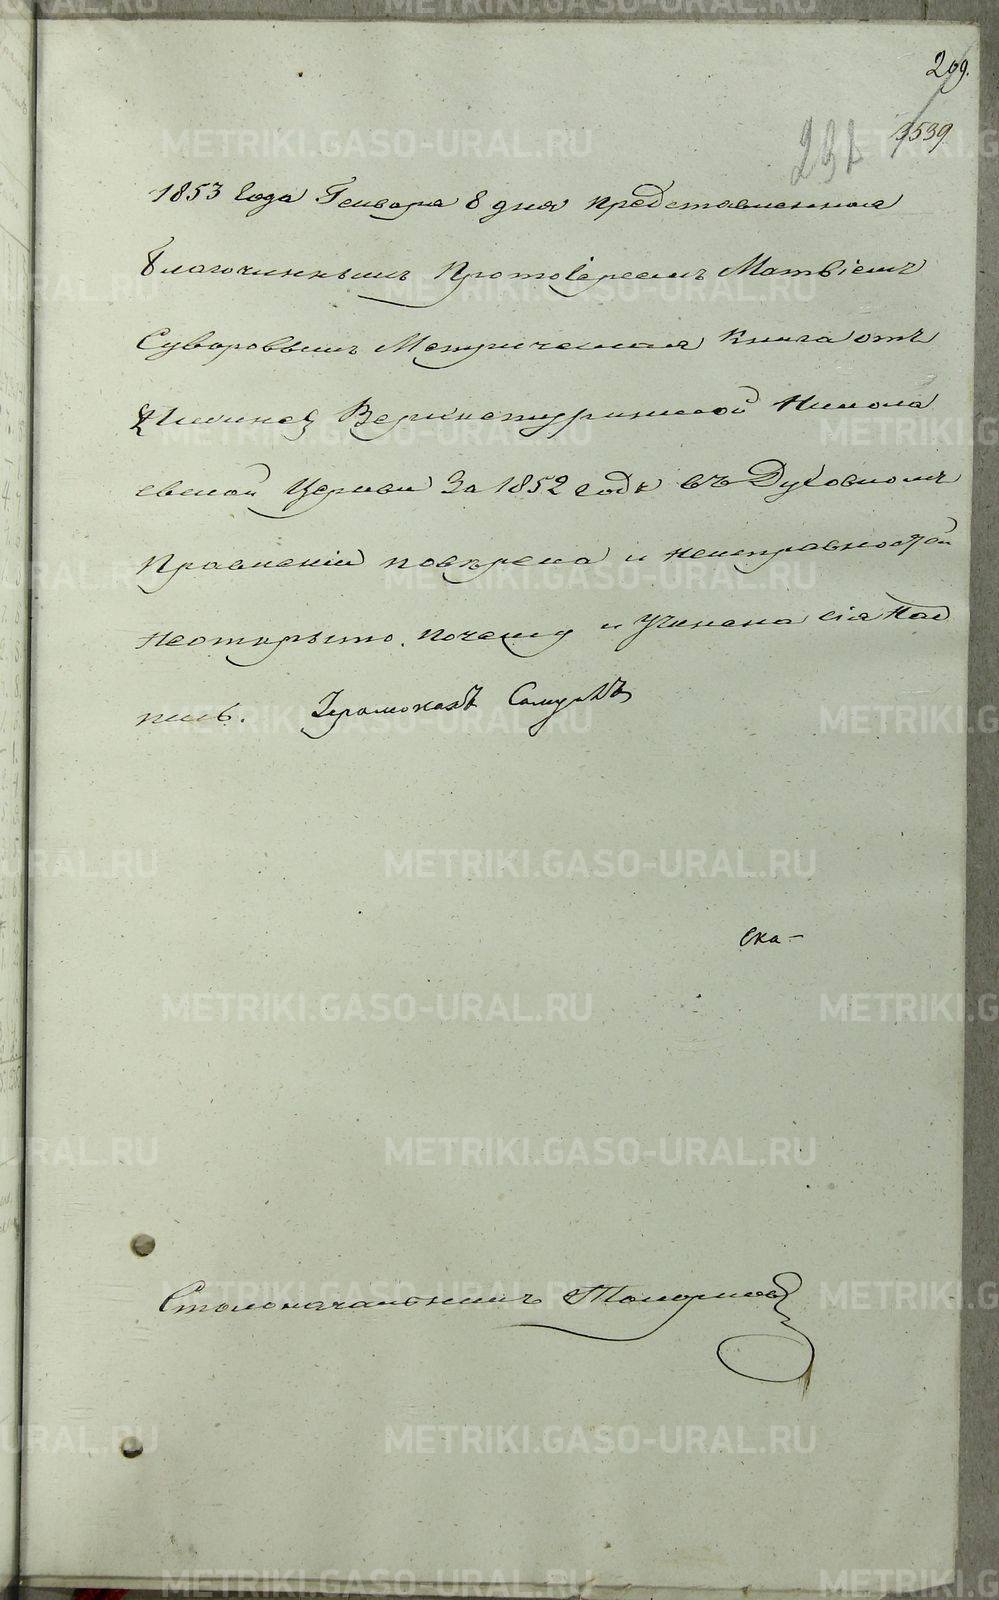 209.
231
3539
1853 Года Генваря 8 дня представленная
Благочиннымъ Протоіереемъ Матвіемъ
Суворовымъ Метрическая Книга отъ
Верхнетуринской Никола
евской Церкви За 1852 годъ въ Духовномъ
Правленіи повѣрена и неисправностей
неоткрыто, почему и Учинена сія Над
пись. Іеромонахъ Самуилъ
Ска-
Столоначальникъ
METRIKI.GASO-URAL.RU